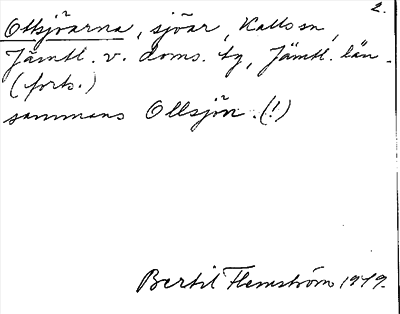 2.
Ottsjöarna, sjöar, Kall sn,
Jämtl. v. doms. tg, Jämtl. län.
(forts.)
sammans Ollsjön. (!)
Bertil Flemström 1979.